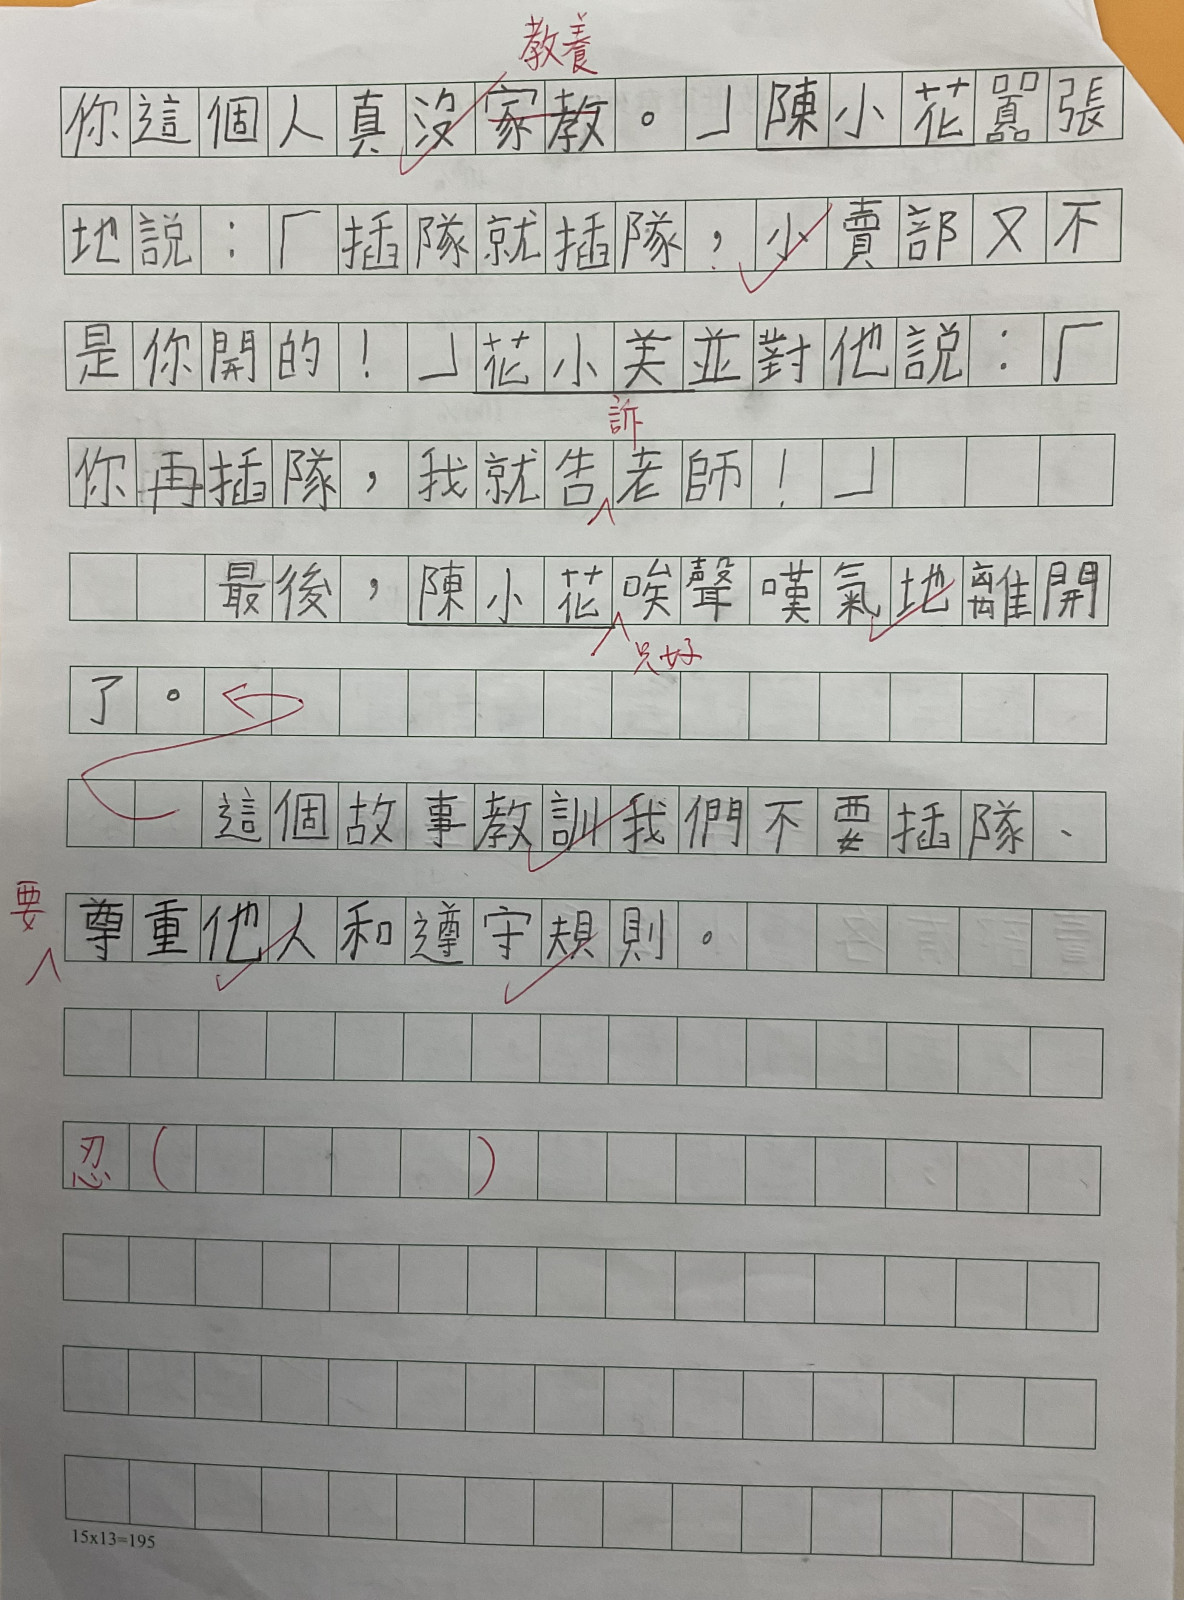 教養
你這個人真沒家教。」陳小花囂張
地說：「插隊就插隊，小賣部又不
是你開的！」花小美並對他說：「
訴
你再插隊，我就告老師！」
最後，陳小花唉聲嘆氣地離開
只好
了。
這個故事教訓我們不要插隊、
要
尊重他人和遵守規則。
忍（ ）
15x13=195